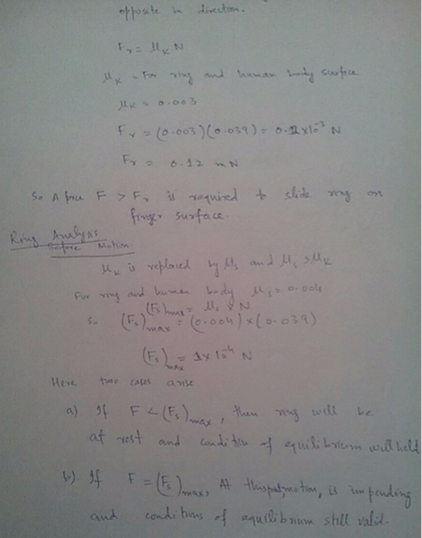 opposite in direction.
Fr = μk N
μk = For ring and human body surface
μk = 0.003
Fr = (0.003)(0.039) = 0.12x10⁻³ N
Fr = 0.12 mN
So A force F > Fr is required to slide ring on
finger surface.
Ring Analysis
Before Motion
μk is replaced by μs and μs > μk
For ring and human body μs = 0.004
(Fs)max = μs x N
So (Fs)max = (0.004) x (0.039)
(Fs)max = 1x10⁻⁴ N
Here two cases arise
a) If F < (Fs)max, then ring will be
at rest and condition of equilibrium will hold
b) If F = (Fs)max, At this pt, motion, is impending
and conditions of equilibrium still valid.